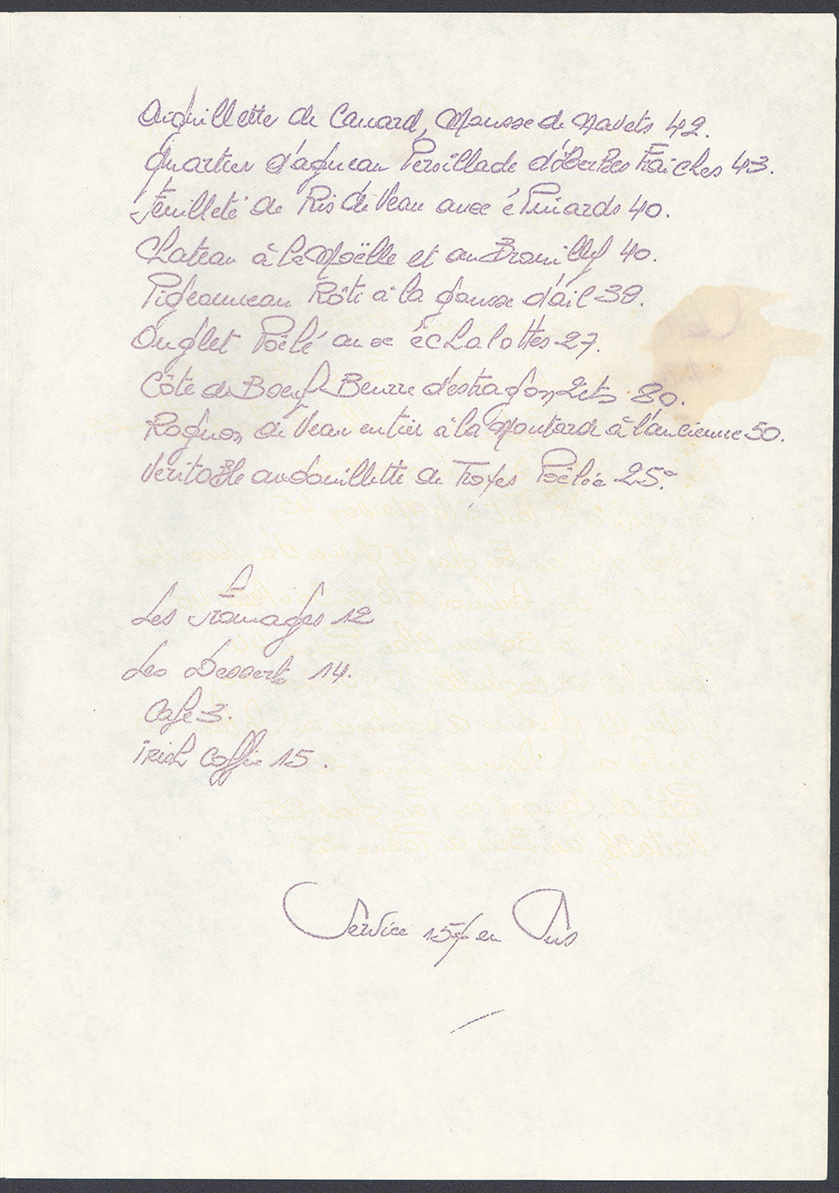 Aiguillette de Canard, Mousse de Navets 42.
Quartier d'agneau Persillade d'herbes Fraîches 43.
Feuilleté de Ris de Veau avec épinards 40.
Chateau à la Moëlle et au Brouilly 40.
Pigeonneau Rôti à la gousse d'ail 38.
Onglet Poêlé avec échalottes 27.
Côte de Boeuf Beurre d'estragon 2 ets 80.
Rognon de Veau entier à la Moutarde à l'ancienne 50.
Veritable andouillette de Troyes Poêlée 25.
Les Fromages 12
Les Desserts 14.
Café 3.
irish Coffie 15.
Service 15% en Sus